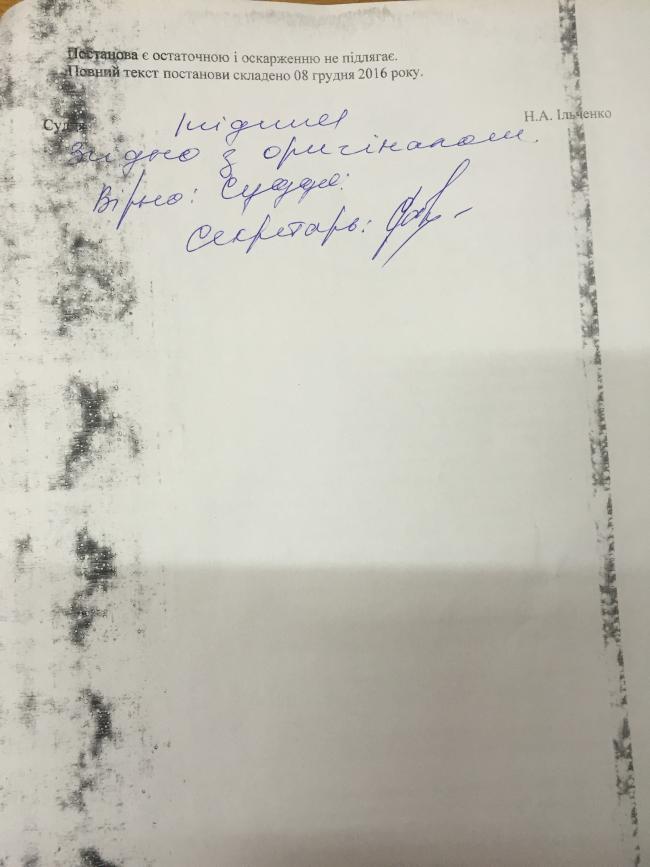 Постанова є остаточною і оскарженню не підлягає.
Повний текст постанови складено 08 грудня 2016 року.
Суддя підпис Н.А. Ільченко
Згідно з оригіналом.
Вірно: Суддя:
Секретарь: